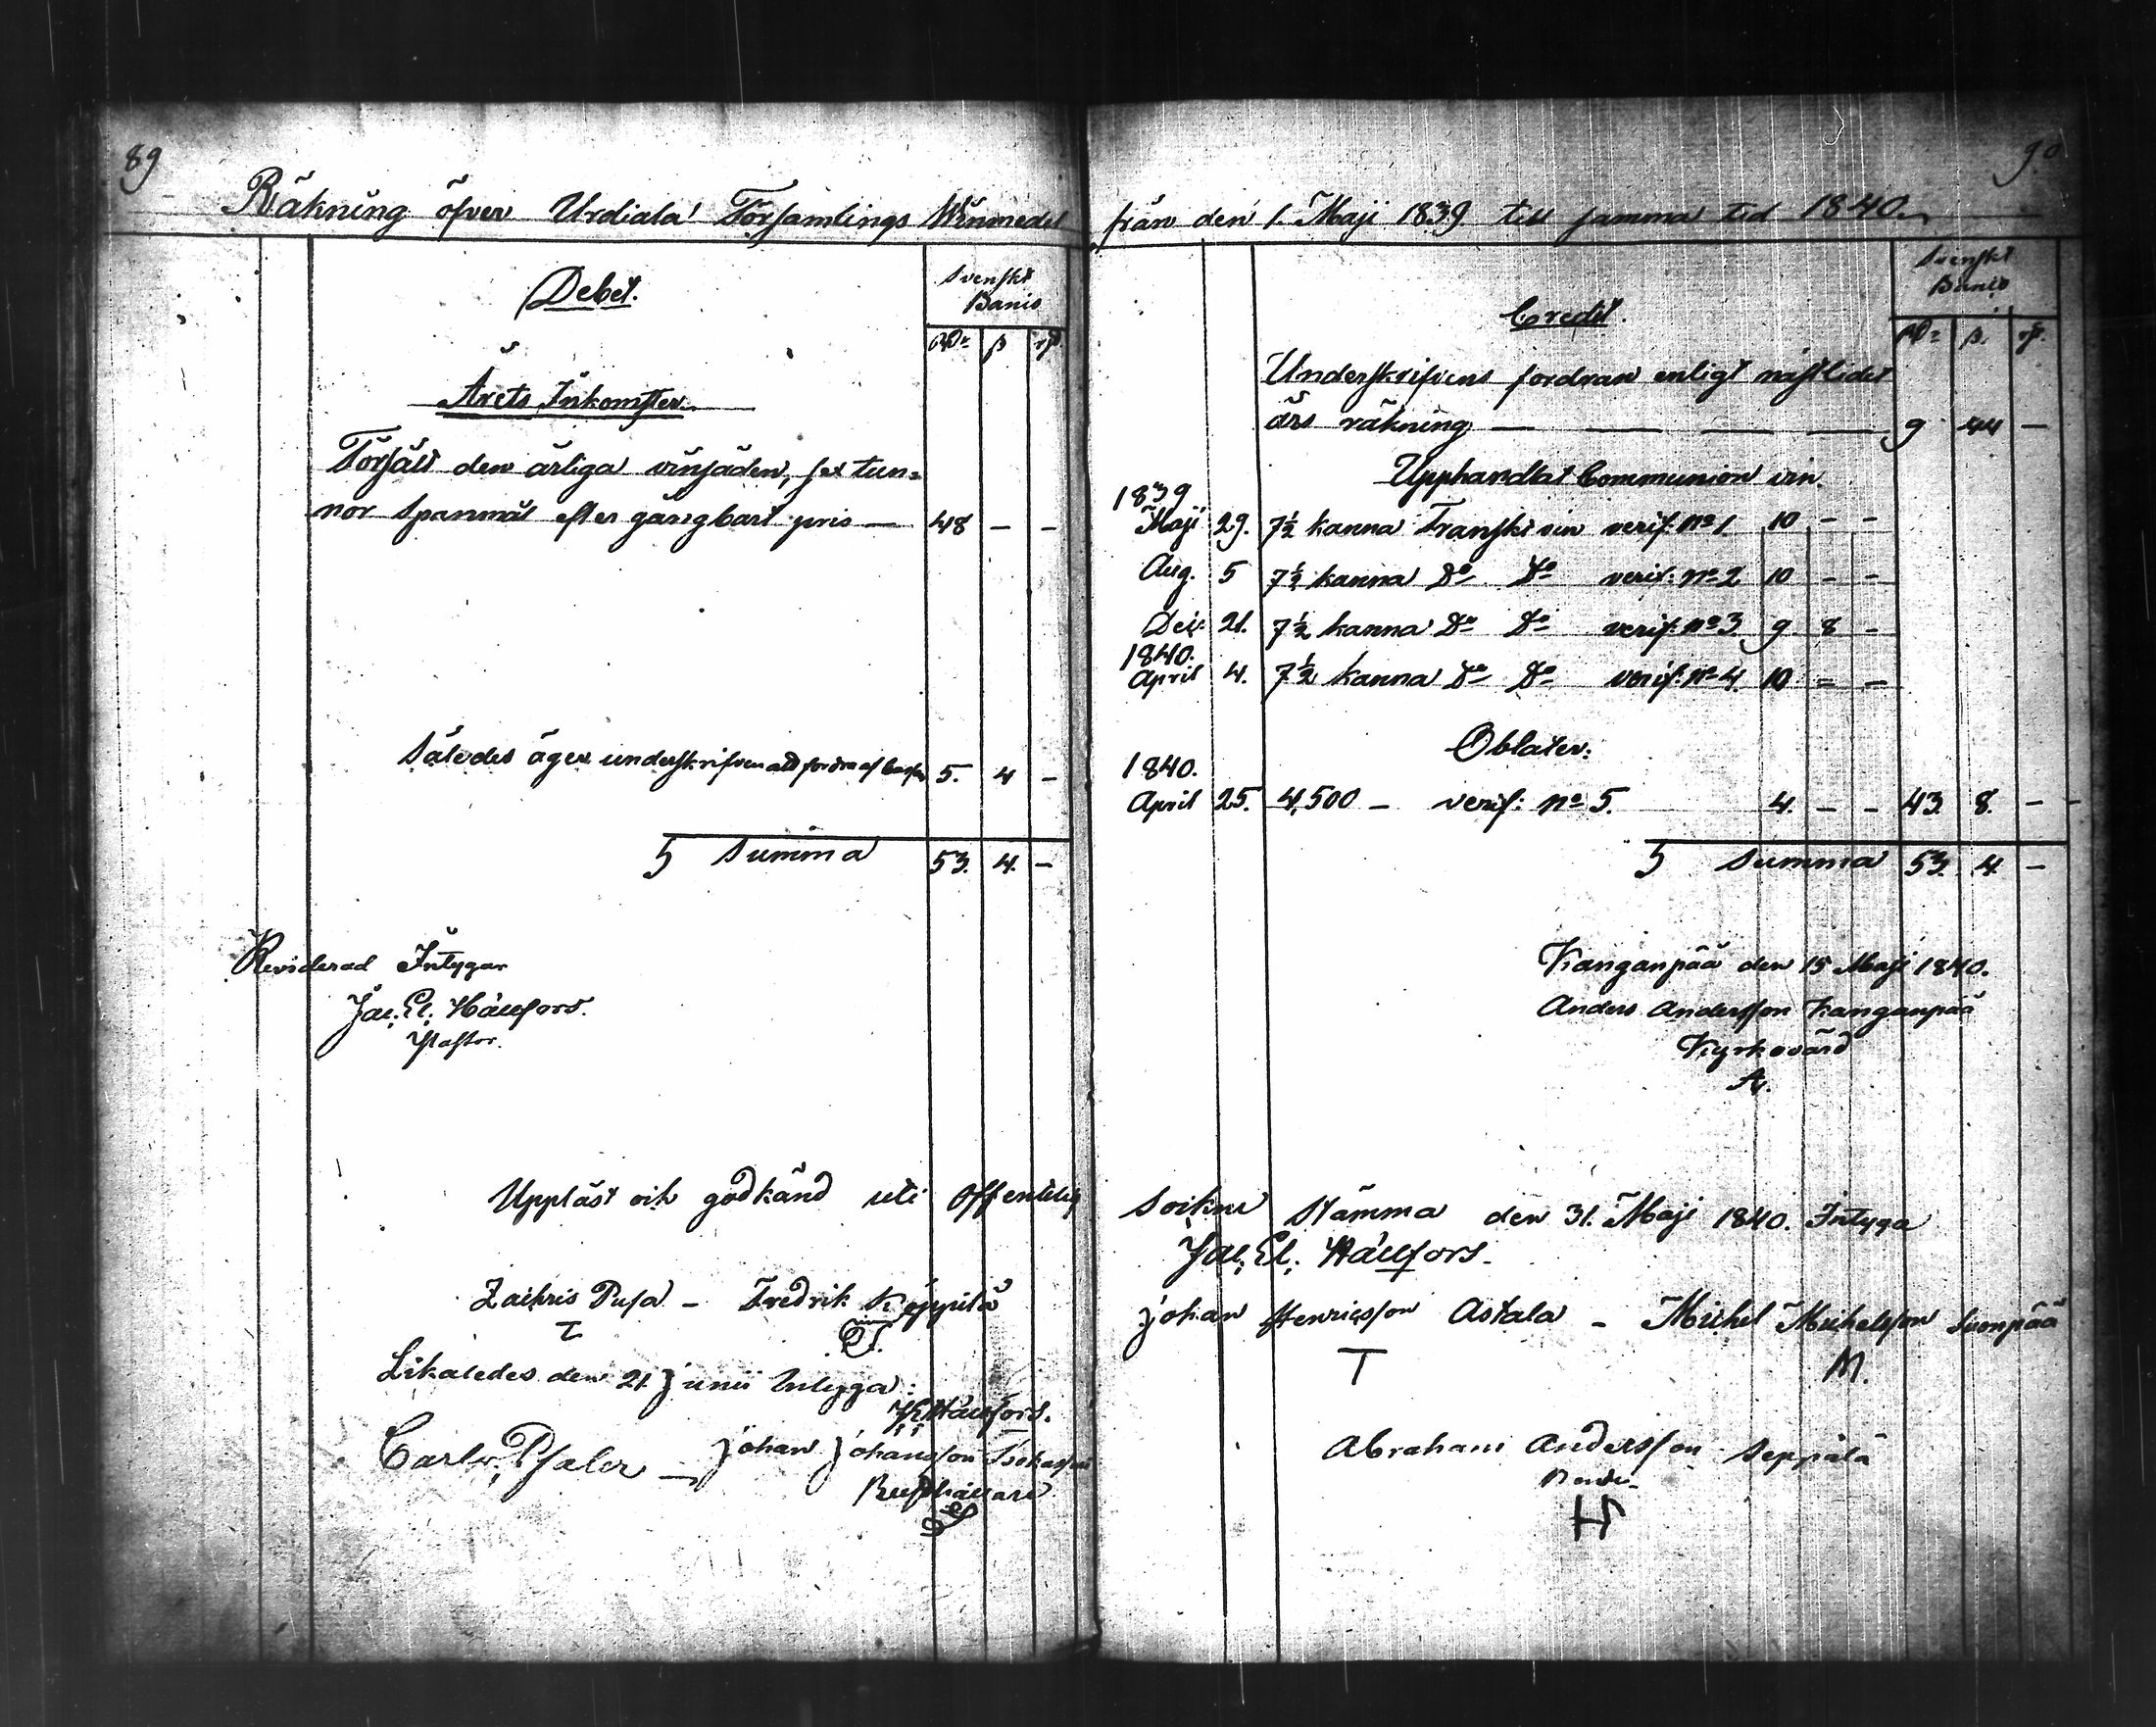 89
Räkning öfver Urdiala Församlings Winmedel
Debet.
Svenskt
Banco
RDr ß rst.
Årets Inkomster.
Försåld den årliga vinsäden, sex tun=
nor Spanmål efter gångbart pris — 48 — —
Således äger underskrifven att fordra af 5. 4 —
Summa 53. 4. —
Reviderad Intygar
Jac. El. Hällfors.
Pastor.
Uppläst och godkänd uti offentelig
Zachris Pusa — Fredrik Köppilä
T
Likaledes den 21 Junii Intyga:
J. E. Hällfors.
Carl Psaler — Johan Johansson
Rusthållare
90
från den 1. Maji 1839. till samma tid 1840.
Credit.
Svenskt
Banco
RDr ß. rst.
Underskrifvens fordran enligt nästledet
års räkning — — — — 9 44 —
Upphandlat Communion vin.
1839
Maji 29. 7½ kanna Franskt vin verif: no 1. 10 — —
Aug. 5 7½ kanna Do Do verif: no 2 10 — —
Dec: 21. 7½ kanna Do Do verif: no 3. 9. 8 —
1840.
April 4. 7½ kanna Do Do verif: no 4. 10 — —
Oblater:
1840.
April 25. 4,500 — verif: no 5. 4. — — 43. 8. —
Summa 53. 4. —
Kanganpää den 15 Maji 1840.
Anders Andersson Kanganpää
Kyrkovärd
Sockne Stämma den 31. Maji 1840. Intyga
Jac. El. Hällfors.
Johan Henricsson Astala — Michel Michelsson Suonpää
T M.
Abraham Andersson Seppälä
Bonde